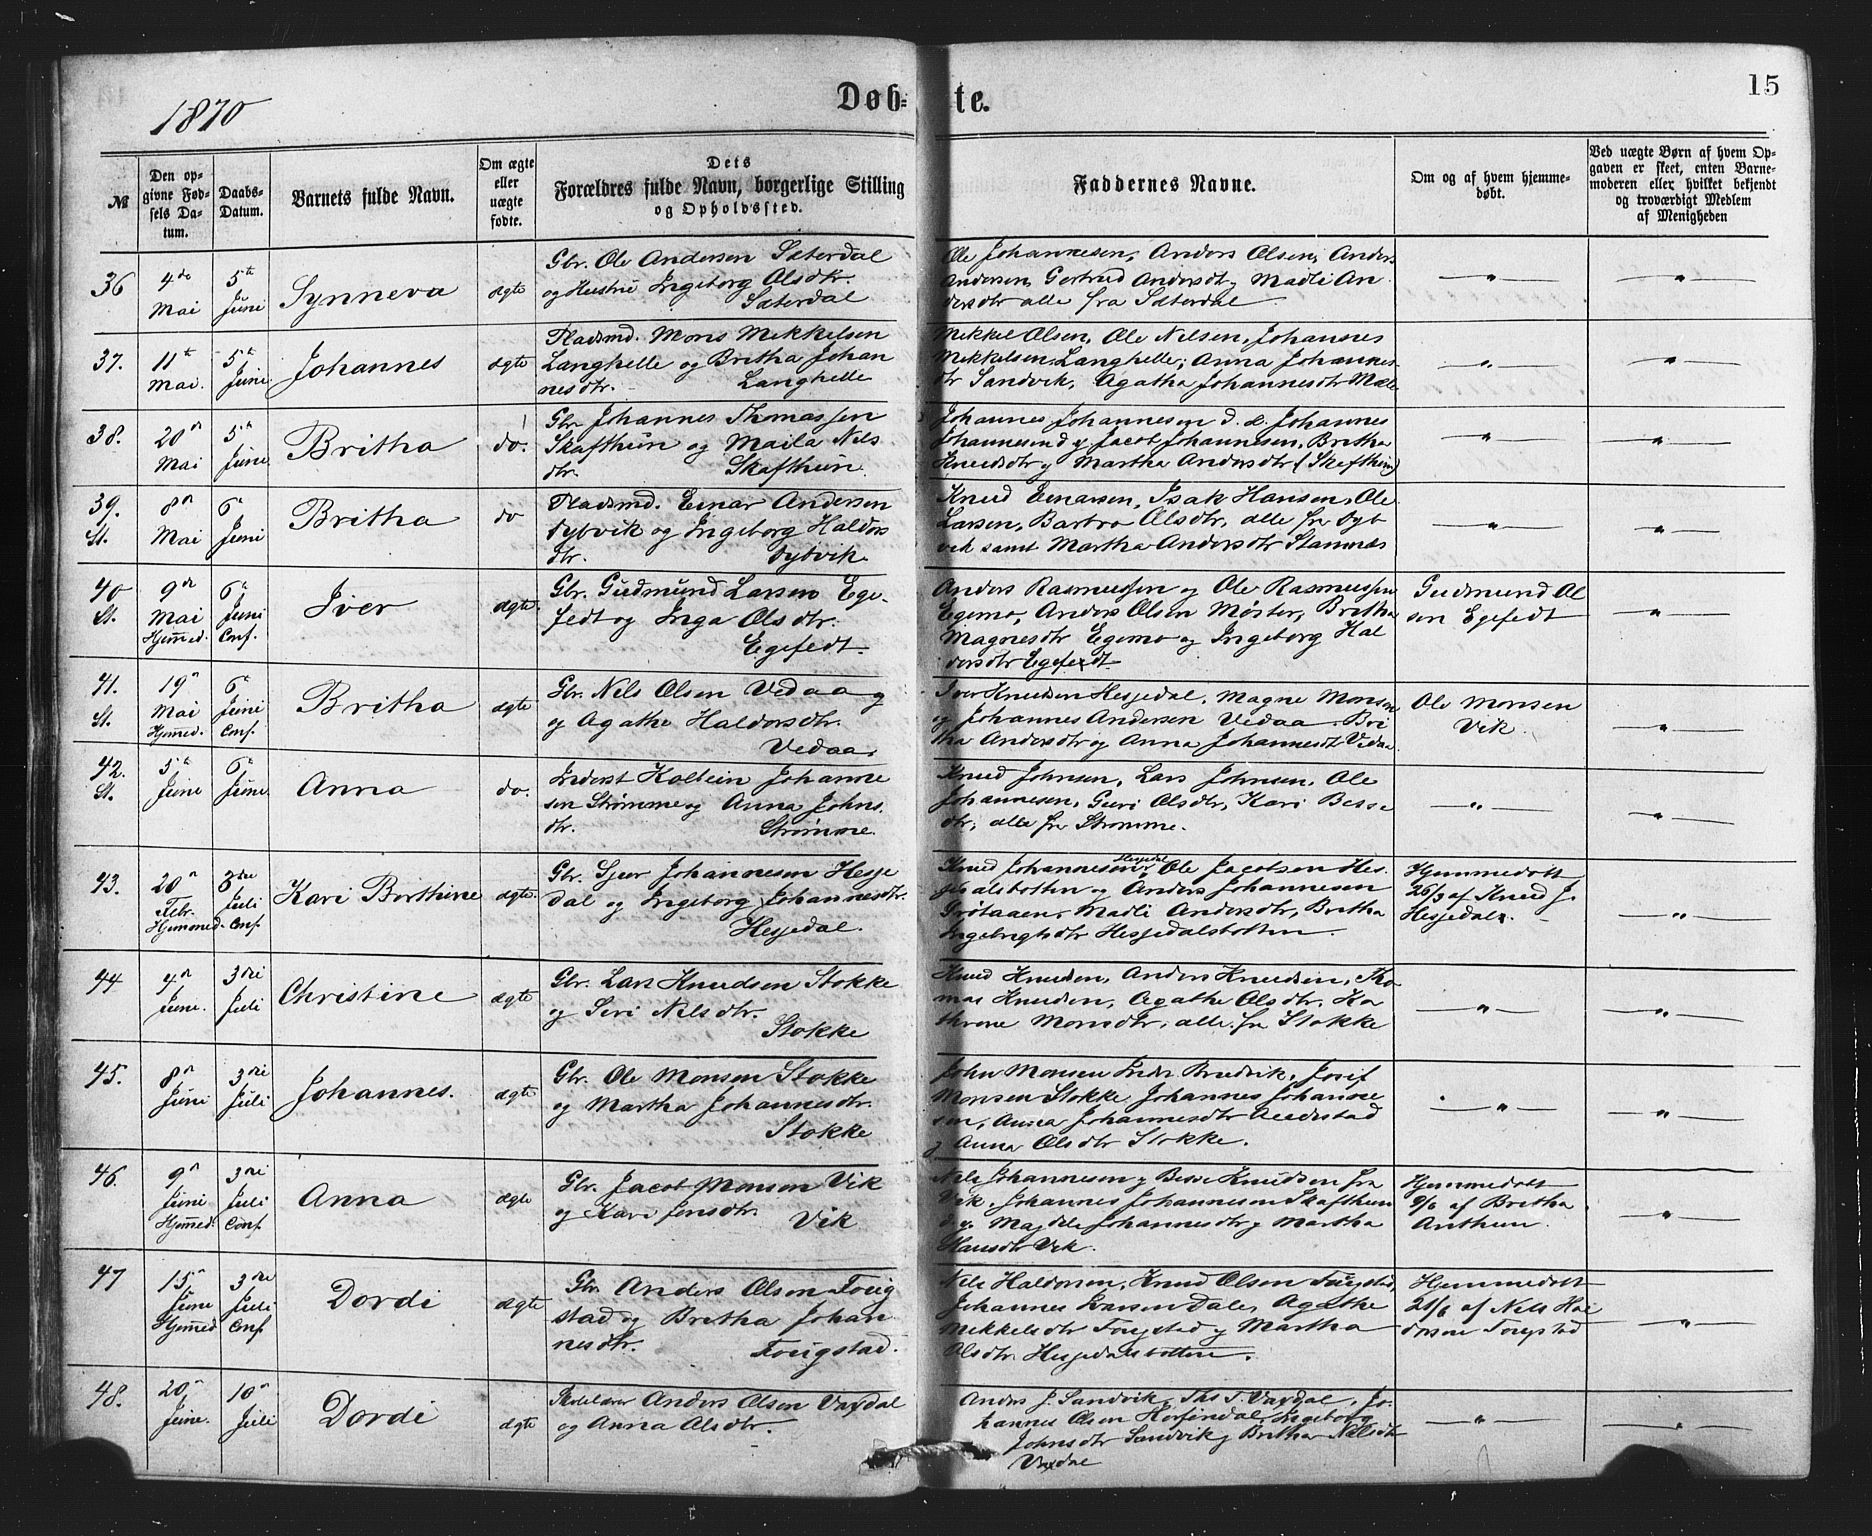 1870
Døb=
te.
15
№
Den op-
givne Fød-
sels Da-
tum.
Daabs-
Datum.
Barnets fulde Navn.
Om ægte
eller
uægte
fødte.
Dets
Forældres fulde Navn, borgerlige Stilling
og Opholdssted.
Faddernes Navne.
Om og af hvem hjemme-
døbt.
Ved uægte Børn af hvem Op-
gaven er skeet, enten Barne-
moderen eller hvilket bekjendt
og troværdigt Medlem
af Menigheden
36
4de
Mai
5te
Juni
Synneva
ægte
Gbr. Ole Andersen Sæterdal
og Hustru Ingeborg Olsdtr.
Sæterdal
Ole Johannesen, Anders Olsen, Anders
Andersen, Gertrud Andersdtr, Madli An
dersdtr alle fra Sæterdal
37.
11te
Mai.
5te
Juni
Johannes
ægte
Pladsmd. Mons Mekkelsen
Langhelle og Britha Johan
nesdtr.
Langhelle
Mekkel Olsen, Ole Nilsen, Johannes
Mekkelsen Langhelle; Anna Johannes-
dtr Sandvik, Agatha Johannesdtr Mæle
38.
20de
Mai
5te
Juni
Britha
do.
Gbr Johannes Thomassen
Skafthun og Maila Nils
dtr.
Skafthun.
Johannes Johannesen d. æ. Johannes
Johannesen d y Jacob Johannesen, Britha
Knudsdtr y Martha Andersdtr (Skafthun)
39.
St.
8de
Mai
6te
Juni
Britha
do
Pladsmd. Einar Andersen
Dybvik og Ingeborg Haldors
dtr.
Dybvik
Knud Einarsen, Isak Hansen, Ole
Larsen, Barbro Olsdtr, alle fra Dyb
vik samt Martha Andersdtr Stamnæs
40
St.
9de
Mai
Hjemmed.
6te
Juni
Conf.
Iver
ægte
Gbr. Gudmund Larsen Ege-
fedt og Inga Olsdtr.
Egefedt.
Anders Rasmussen og Ole Rasmussen
Egemo, Anders Olsen Møster, Britha
Magnesdtr Egemo og Ingeborg Hal
dorsdtr Egefedt
Gudmund Ol
sen Egefedt
41.
St.
19de
Mai
Hjemmed.
6te
Juni
Conf.
Britha
ægte
Gbr. Nils Olsen Vedaa og
og Agathe Haldorsdtr.
Vedaa.
Iver Knudsen Hesjedal, Magne Monsen
og Johannes Andersen Vedaa. Bri
tha Andersdtr og Anna Johannesdtr Vedaa.
Ole Monsen
Vik
42.
St.
5te
Juni
6te
Juni
Anna
do.
Inderst Kolbein Johanne
sen Strømme og Anna Johns.
dtr.
Strømme.
Knud Johnsen, Lars Johnsen, Ole
Johannesen, Guri Olsdtr, Kari Besse
dtr, alle fra Strømme.
43.
20de
Febr.
Hjemmed.
3die
Juli
Conf
Kari Birthine
ægte.
Gbr. Sjur Johannesen Hesje
dal og Ingeborg Johannesdtr.
Hesjedal.
Knud Johannesen Hesjedal, Ole Jacobsen Hes-
jedalsbotten og Anders Johannesen
Grøtaaen, Madli Andersdtr, Britha
Ingebrigtsdtr Hesjedalsbotten.
Hjemmedøbt
26/3 af Knud J.
Hesjedal.
44
4de
Juni.
3die
Juli
Christine
ægte
Gbr. Lars Knudsen Stokke
og Siri Nilsdtr.
Stokke
Knud Knudsen, Anders Knudsen, Tho
mas Knudsen, Agathe Olsdtr. Ka
thrine Monsdtr, alle fra Stokke
45.
8de
Juni
3die
Juli
Johannes.
ægte
Gbr. Ole Monsen Stokke
og Martha Johannesdtr.
Stokke
John Monsen Indr. Bruvik, Josef
Monsen Stokke Johannes Johanne
sen, Anna Johannesdtr
y Anna Olsdtr Stokke.
46.
9de
Juni
Hjemmed
3die
Juli
Conf
Anna
ægte
Gbr. Jacob Monsen Vik
og Kari Jensdtr.
Vik
Nils Johannesen y Besse Knudsen fra
Vik, Johannes Johannesen Skafthun
d. y. Magdele Johannesdtr y Martha
Hansdtr Vik.
Hjemmedøbt
9/6 af Britha
Anthun.
47
15de
Juni
Hjemmed
3die
Juli
Conf
Dordi
ægte
Gbr Anders Olsen Fuig
stad og Britha Johan
nesdtr.
Fuigstad.
Nils Haldorsen, Knud Olsen Fuigstad,
Johannes Larsen Dale, Agathe
Mekkelsdtr Fuigstad y Martha
Olsdtr. Hesjedalsbotten.
Hjemmedøbt
21/6 af Nils Hal
dorsen Fuigstad
48.
20de
Juni.
10de
Juli
Dordi
ægte
Skolelærer Anders Olsen Vaxdal
og Anna Olsdtr.
Anders J. Sandvik, Ths T. Vaxdal, Jo-
hannes Olsen Horsindal, Ingeborg
Johnsdtr Sandvik y Britha Nilsdtr
Vaxdal